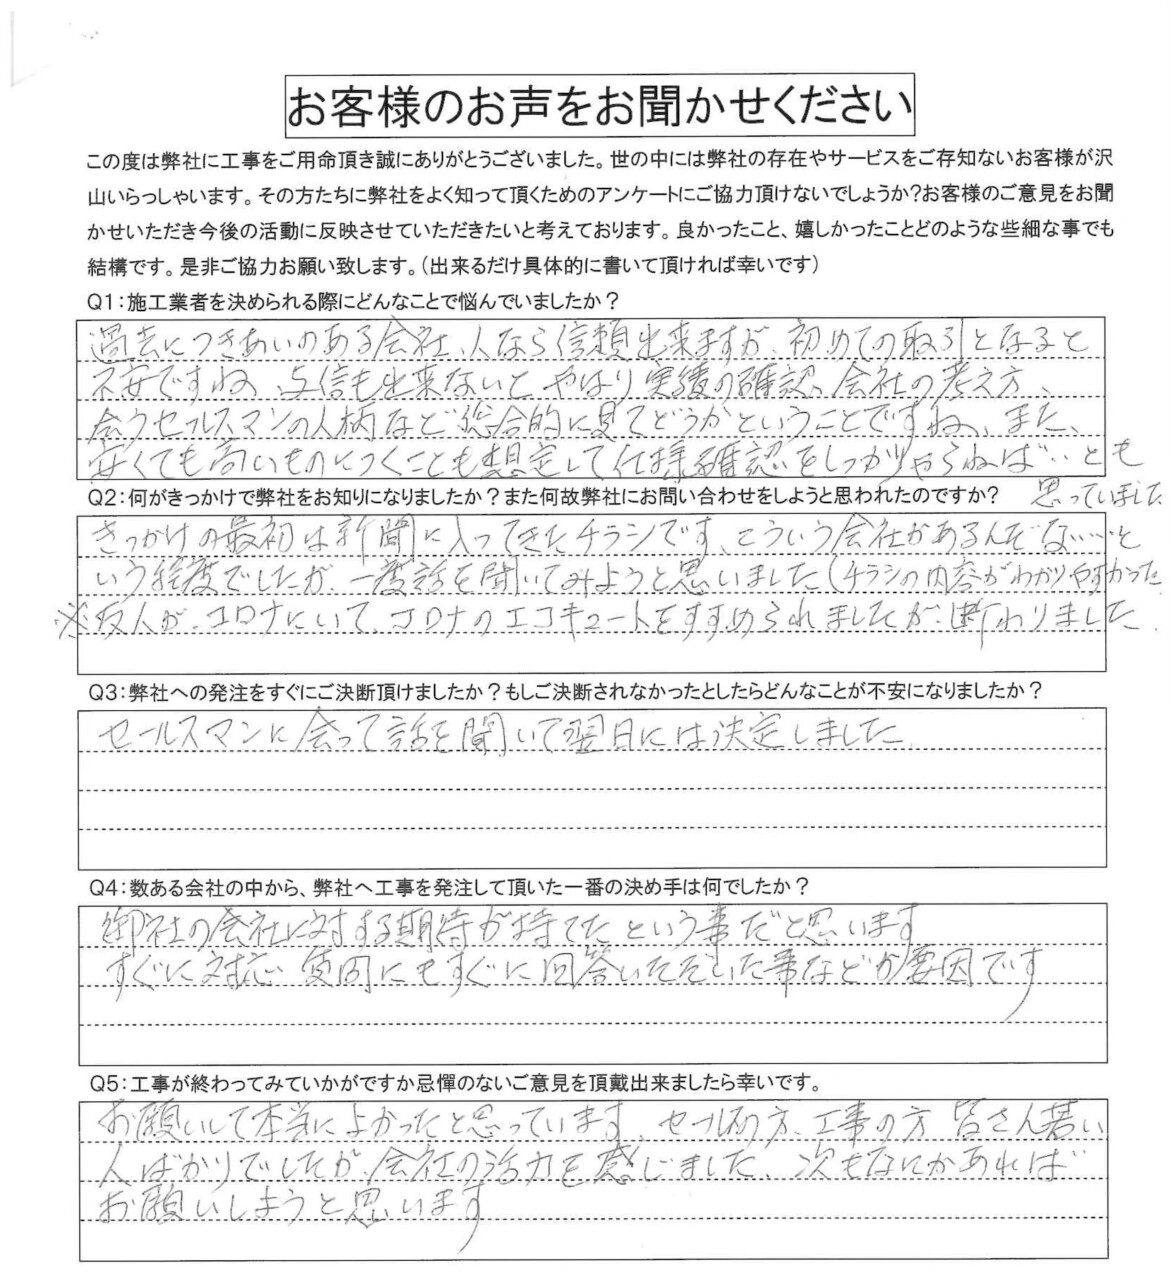 お客様のお声をお聞かせください
この度は弊社に工事をご用命頂き誠にありがとうございました。世の中には弊社の存在やサービスをご存知ないお客様が沢
山いらっしゃいます。その方たちに弊社をよく知って頂くためのアンケートにご協力頂けないでしょうか?お客様のご意見をお聞
かせいただき今後の活動に反映させていただきたいと考えております。良かったこと、嬉しかったことどのような些細な事でも
結構です。是非ご協力お願い致します。(出来るだけ具体的に書いて頂ければ幸いです)
Q1:施工業者を決められる際にどんなことで悩んでいましたか?
過去につきあいのある会社、人なら信頼出来ますが、初めての取引となると
不安ですね、与信も出来ないと やはり実績の確認、会社の考え方、
会うセールスマンの人柄など総合的に見てどうかということですね、また、
安くても高いものにつくことも想定して仕様確認をしっかりやらねば‥とも
思っていました
Q2:何がきっかけで弊社をお知りになりましたか?また何故弊社にお問い合わせをしようと思われたのですか?
きっかけの最初は新聞に入ってきたチラシです、こういう会社があるんだな……と
いう程度でしたが、一度話を聞いてみようと思いました(チラシの内容がわかりやすかった
※友人が、コロナにいて、コロナのエコキュートをすすめられましたが、断わりました.
Q3:弊社への発注をすぐにご決断頂けましたか?もしご決断されなかったとしたらどんなことが不安になりましたか?
セールスマンに会って話を聞いて翌日には決定しました
Q4:数ある会社の中から、弊社へ工事を発注して頂いた一番の決め手は何でしたか?
御社の会社に対する期待が持てた という事だと思います
すぐに対応 質問にもすぐに回答いただいた事などが要因です
Q5:工事が終わってみていかがですか忌憚のないご意見を頂戴出来ましたら幸いです。
お願いして本当によかったと思っています、セールスの方、工事の方 皆さん若い
人ばかりでしたが、会社の活力を感じました、次もなにかあれば
お願いしようと思います